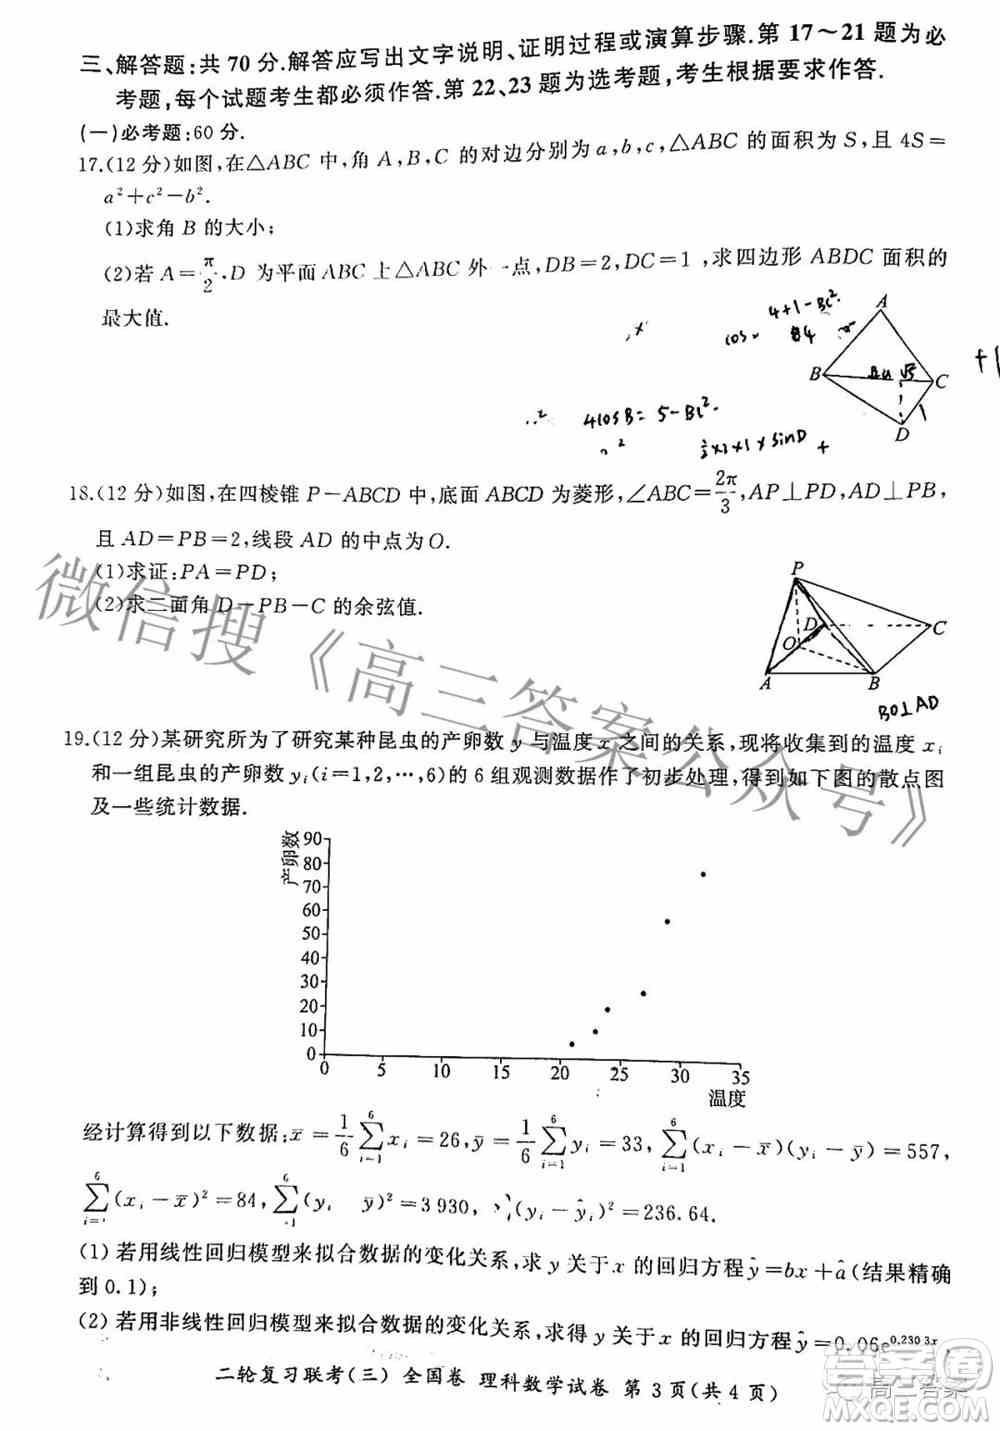 三、解答题:共70分.解答应写出文字说明、证明过程或演算步骤.第17～21题为必
考题,每个试题考生都必须作答.第22、23题为选考题,考生根据要求作答.
(一)必考题:60分.
17.(12分)如图,在△ABC中,角A,B,C的对边分别为a,b,c,△ABC的面积为S,且4S=
a²+c²-b².
(1)求角B的大小;
(2)若A=π/2,D为平面ABC上△ABC外一点,DB=2,DC=1,求四边形ABDC面积的
最大值.
4+1-BC²
cos
A
B
C
D
√5
1
+1
4cosB = 5-BC²
½×2×1×sinD +
18.(12分)如图,在四棱锥P-ABCD中,底面ABCD为菱形,∠ABC=2π/3,AP⊥PD,AD⊥PB,
且AD=PB=2,线段AD的中点为O.
(1)求证:PA=PD;
(2)求二面角D-PB-C的余弦值.
P
D
C
O
A
B
BO⊥AD
微信搜《高三答案公众号》
19.(12分)某研究所为了研究某种昆虫的产卵数y与温度x之间的关系,现将收集到的温度xᵢ
和一组昆虫的产卵数yᵢ(i=1,2,…,6)的6组观测数据作了初步处理,得到如下图的散点图
及一些统计数据.
产卵数
90
80
70
60
50
40
30
20
10
0
0 5 10 15 20 25 30 35
温度
经计算得到以下数据:x̄=1/6 ∑(i=1→6) xᵢ=26,ȳ=1/6 ∑(i=1→6) yᵢ=33,∑(i=1→6)(xᵢ-x̄)(yᵢ-ȳ)=557,
∑(i=1→6)(xᵢ-x̄)²=84,∑(i=1→6)(yᵢ-ȳ)²=3930,∑(yᵢ-ŷᵢ)²=236.64.
(1)若用线性回归模型来拟合数据的变化关系,求y关于x的回归方程ŷ=b̂x+â(结果精确
到0.1);
(2)若用非线性回归模型来拟合数据的变化关系,求得y关于x的回归方程ŷ=0.06e^0.2303x,
二轮复习联考(三) 全国卷 理科数学试卷 第3页(共4页)
答案圈
高三答案